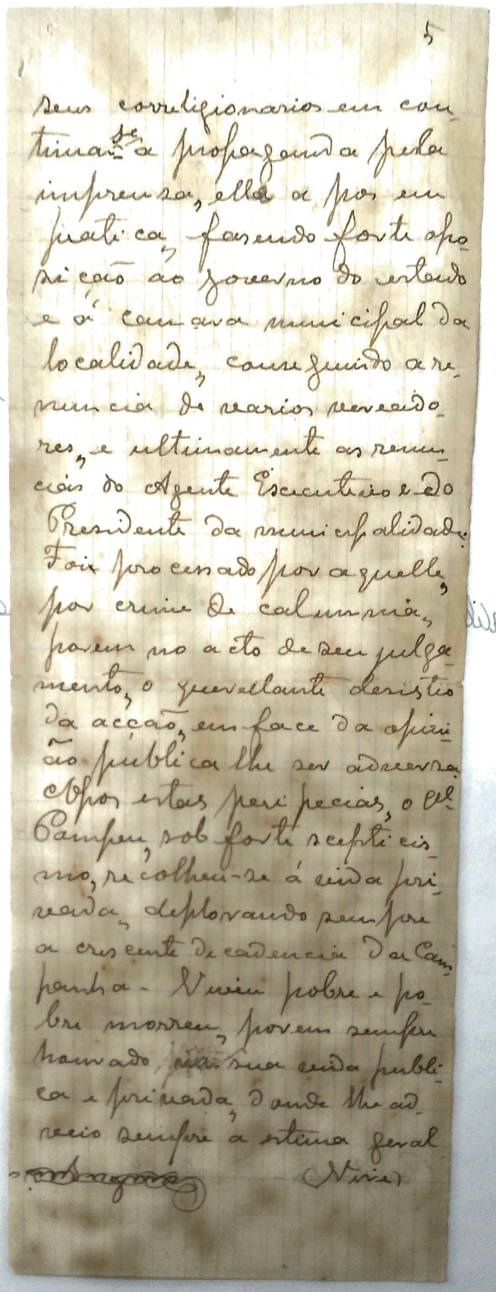 5
seus correligionarios em con-
tinuar-se a propaganda pela
imprensa, elle a pos em
pratica, fasendo forte opo-
sição ao governo do estado
e á camara municipal da
localidade, conseguindo a re-
nuncia de varios vereado-
res, e ultimamente as renun-
cias do Agente Executivo e do
Presidente da municipalidade.
Foi processado por aquelle,
por crime de calumnia,
porem no acto de seu julga-
mento, o querellante desistio
da acção, em face da opini-
ão pública lhe ser adversa.
Apos estas peripecias, o Cel
Pompeu, sob forte scepticis-
mo, recolheu-se á vida pri-
vada, deplorando sempre
a crescente decadencia da Cam-
panha - Viveu pobre e po-
bre morreu, porem sempre
honrado sua vida publi-
ca e privada, donde lhe ad-
veio sempre a estima geral